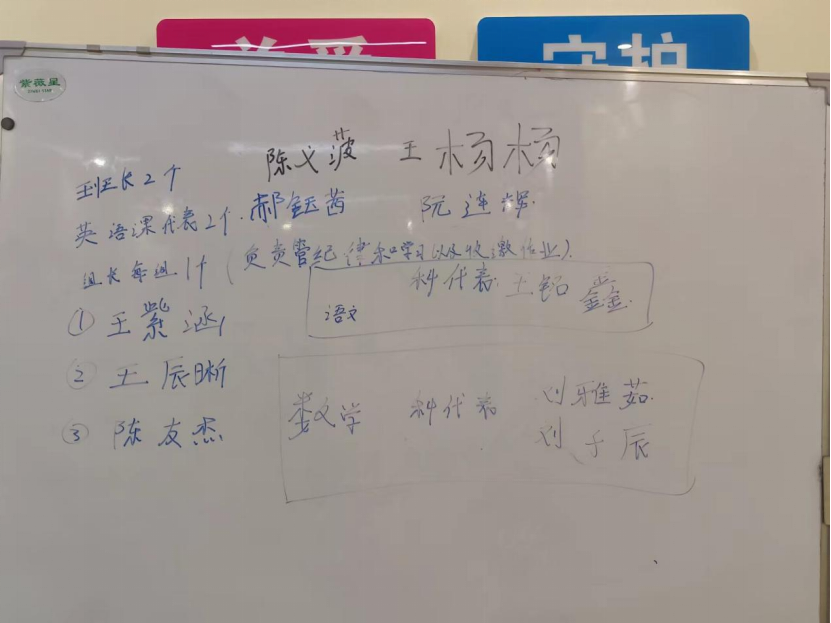 守护
紫薇星
班长2个 陈戈菠 王杨杨
英语课代表2个. 郝钰茜 阮连辉.
组长每组1个(负责管纪律和学习以及收缴作业).
①王紫涵
语文 科代表 王铭鑫
②王辰晰
数学 科代表 刘雅茹.
③陈友杰
刘子辰